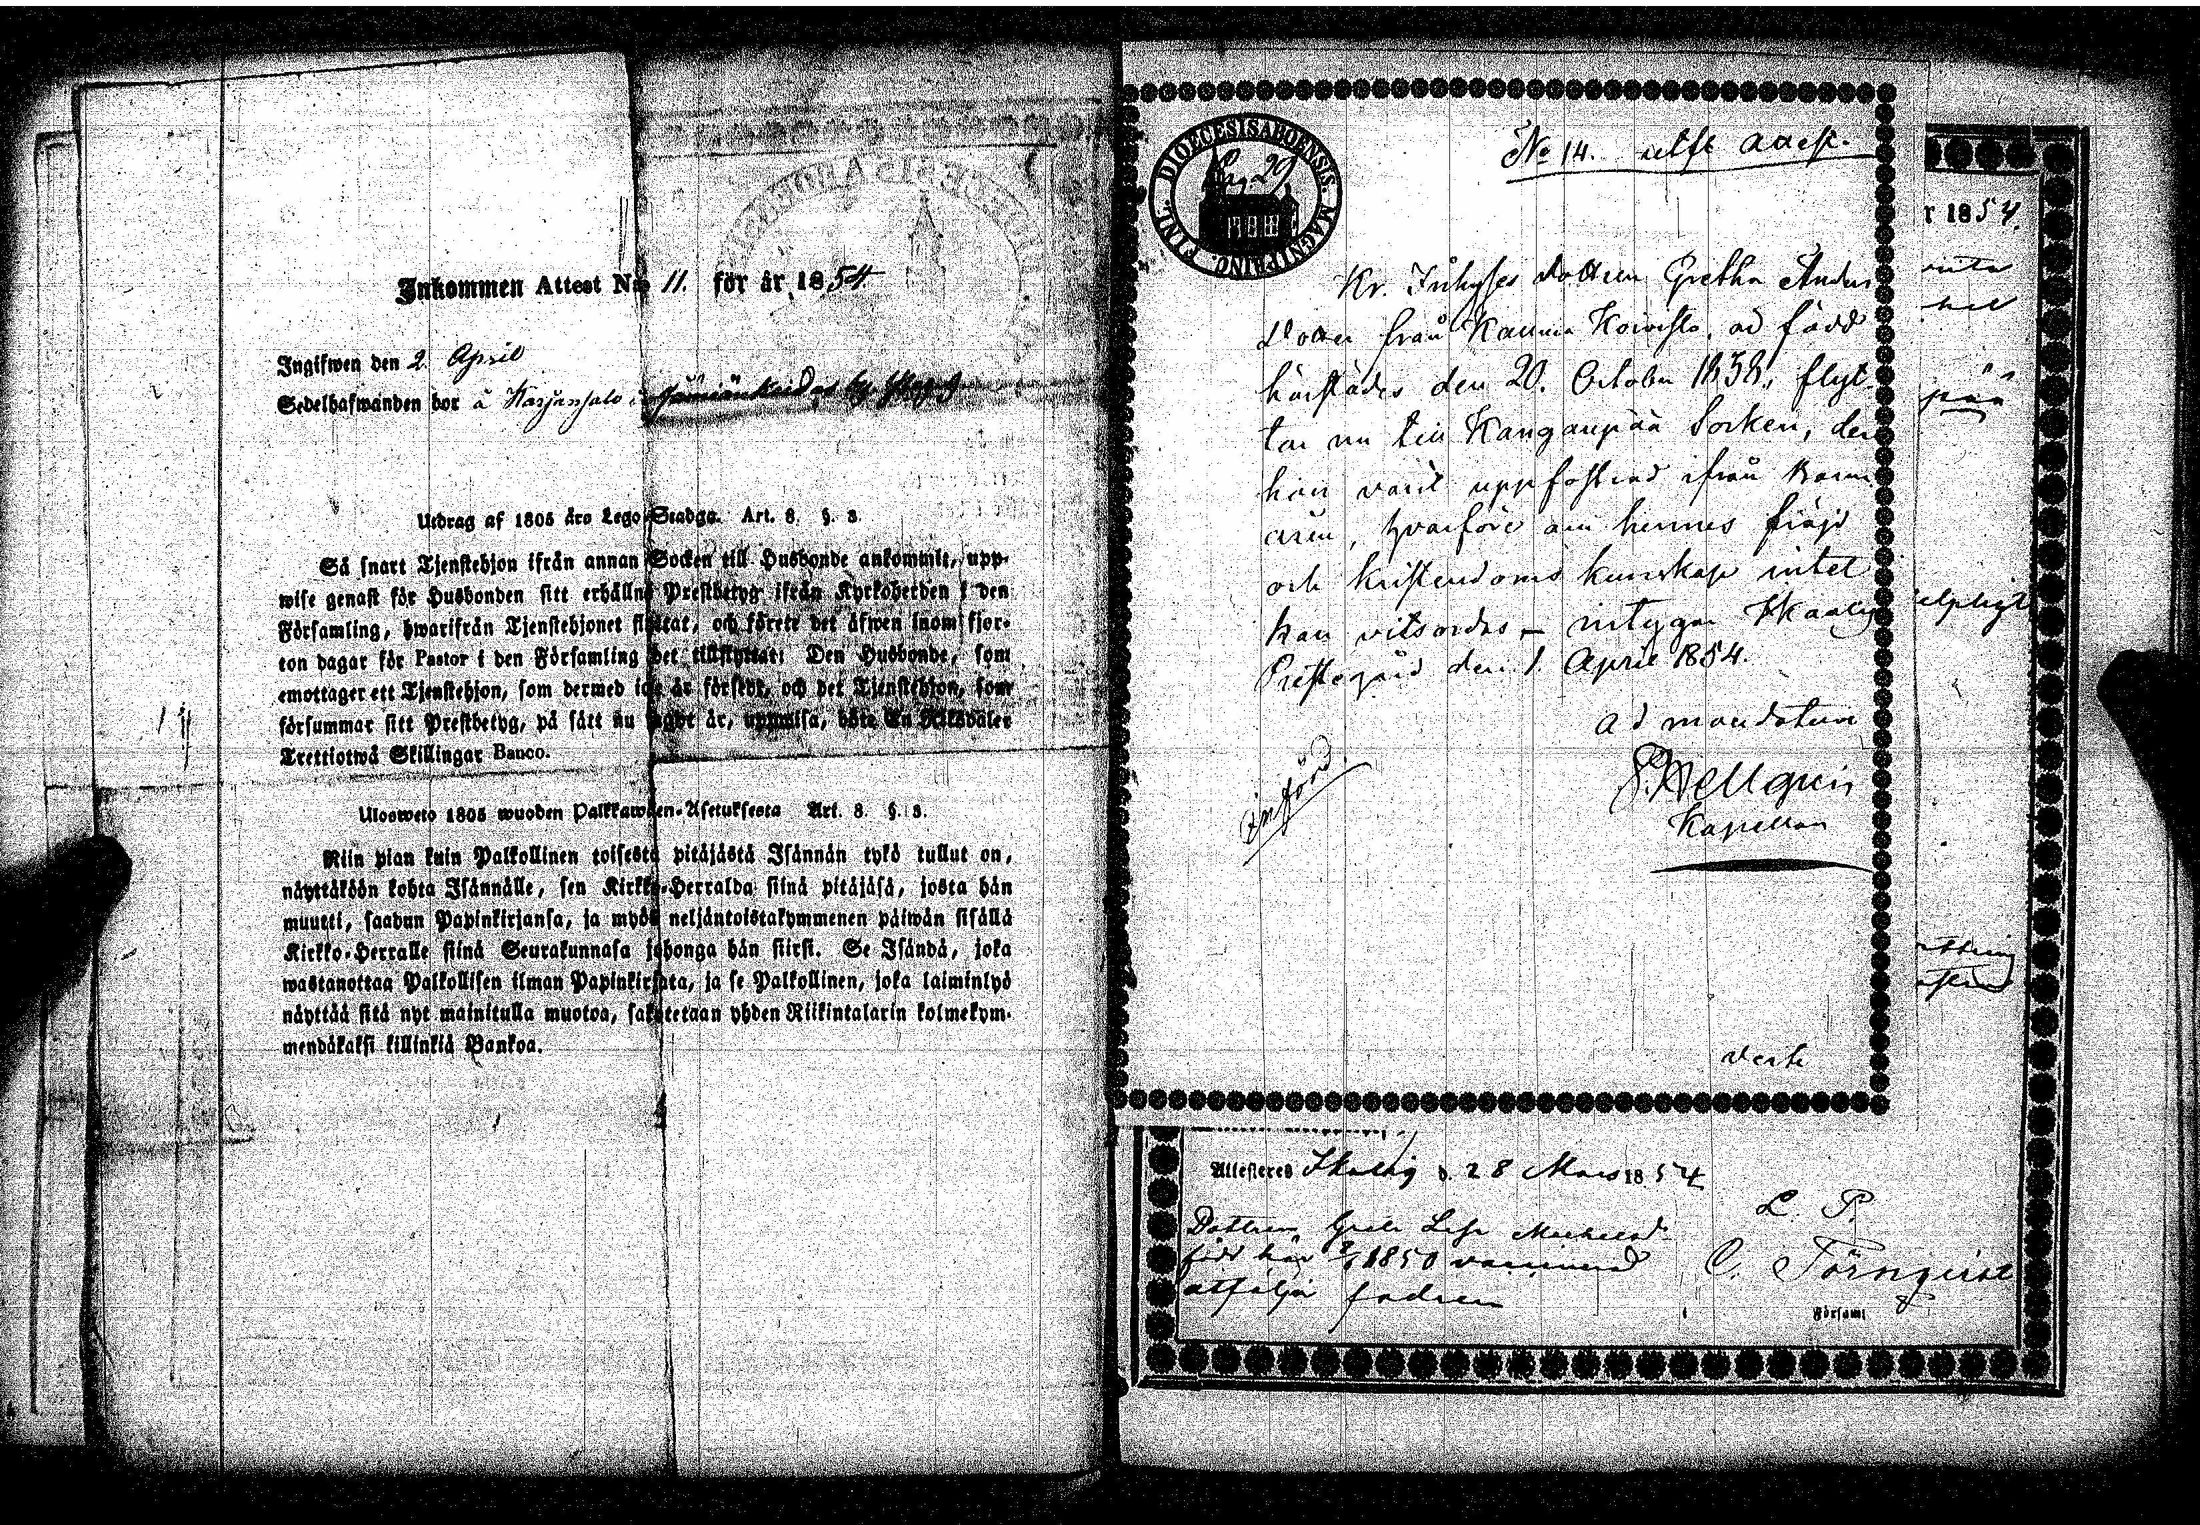 Inkommen Attest No 11. för år 1854
Ingifwen den 2 April
Sedelhafwanden bor å Karjansalo i
Utdrag af 1805 års Lego-Stadga. Art. 8. §. 3.
Så snart Tjenstehjon ifrån annan Socken till Husbonde ankommit, upp-
wise genast för Husbonden sitt erhållna Prestbetyg ifrån Kyrkoherden i den
Församling, hwarifrån Tjenstehjonet flyttat, och förete det äfwen inom fjor-
ton dagar för Pastor i den Församling det tillflyttat: Den Husbonde, som
emottager ett Tjenstehjon, som dermed icke är försedt, och det Tjenstehjon, som
försummar sitt Prestbetyg, på sätt nu sagdt är, uppwisa, böte En Riksdaler
Trettiotwå Skillingar Banco.
Ulosweto 1805 wuoden Palkkawäen-Asetuksesta Art. 8. §. 3.
Niin pian kuin Palkollinen toisesta pitäjästä Isännän tykö tullut on,
näyttäköön kohta Isännälle, sen Kirkko-Herralda siinä pitäjäsä, josta hän
muutti, saadun Papinkirjansa, ja myös neljäntoistakymmenen päiwän sisällä
Kirkko-Herralle siinä Seurakunnasa johonga hän siirsi. Se Isändä, joka
wastanottaa Palkollisen ilman Papinkirjata, ja se Palkollinen, joka laiminlyö
näyttää sitä nyt mainitulla muotoa, sakotetaan yhden Riikintalarin kolmekym-
mendäkaksi killinkiä Bankoa.
DIOECESIS ABOENSIS. MAGNI PRINC. FINL.
No 14. utft attest.
Kr. dottren Gretha Anders
dotter från Kauma Koivisto, född
härstädes den 20. October 1838, flyt-
tar nu till Kangaupää Socken, der
hon varit uppfostrad ifrån barn
åren, hvarföre om hennes fräjd
och kristendoms kunskap intet
kan vitsordas – intygar Ikaalis
Prestegård den 1. April 1854.
ad mandatum
Hellgren
Kapellan
Införd
verte
r 1854.
Attesteras Ikalis d. 28 Mars 1854
L. P.
C. Törnqvist
Dottren Greta Lisa Michelsd.
född här 1850 vaccinerad
åtfölja fadren
Församl